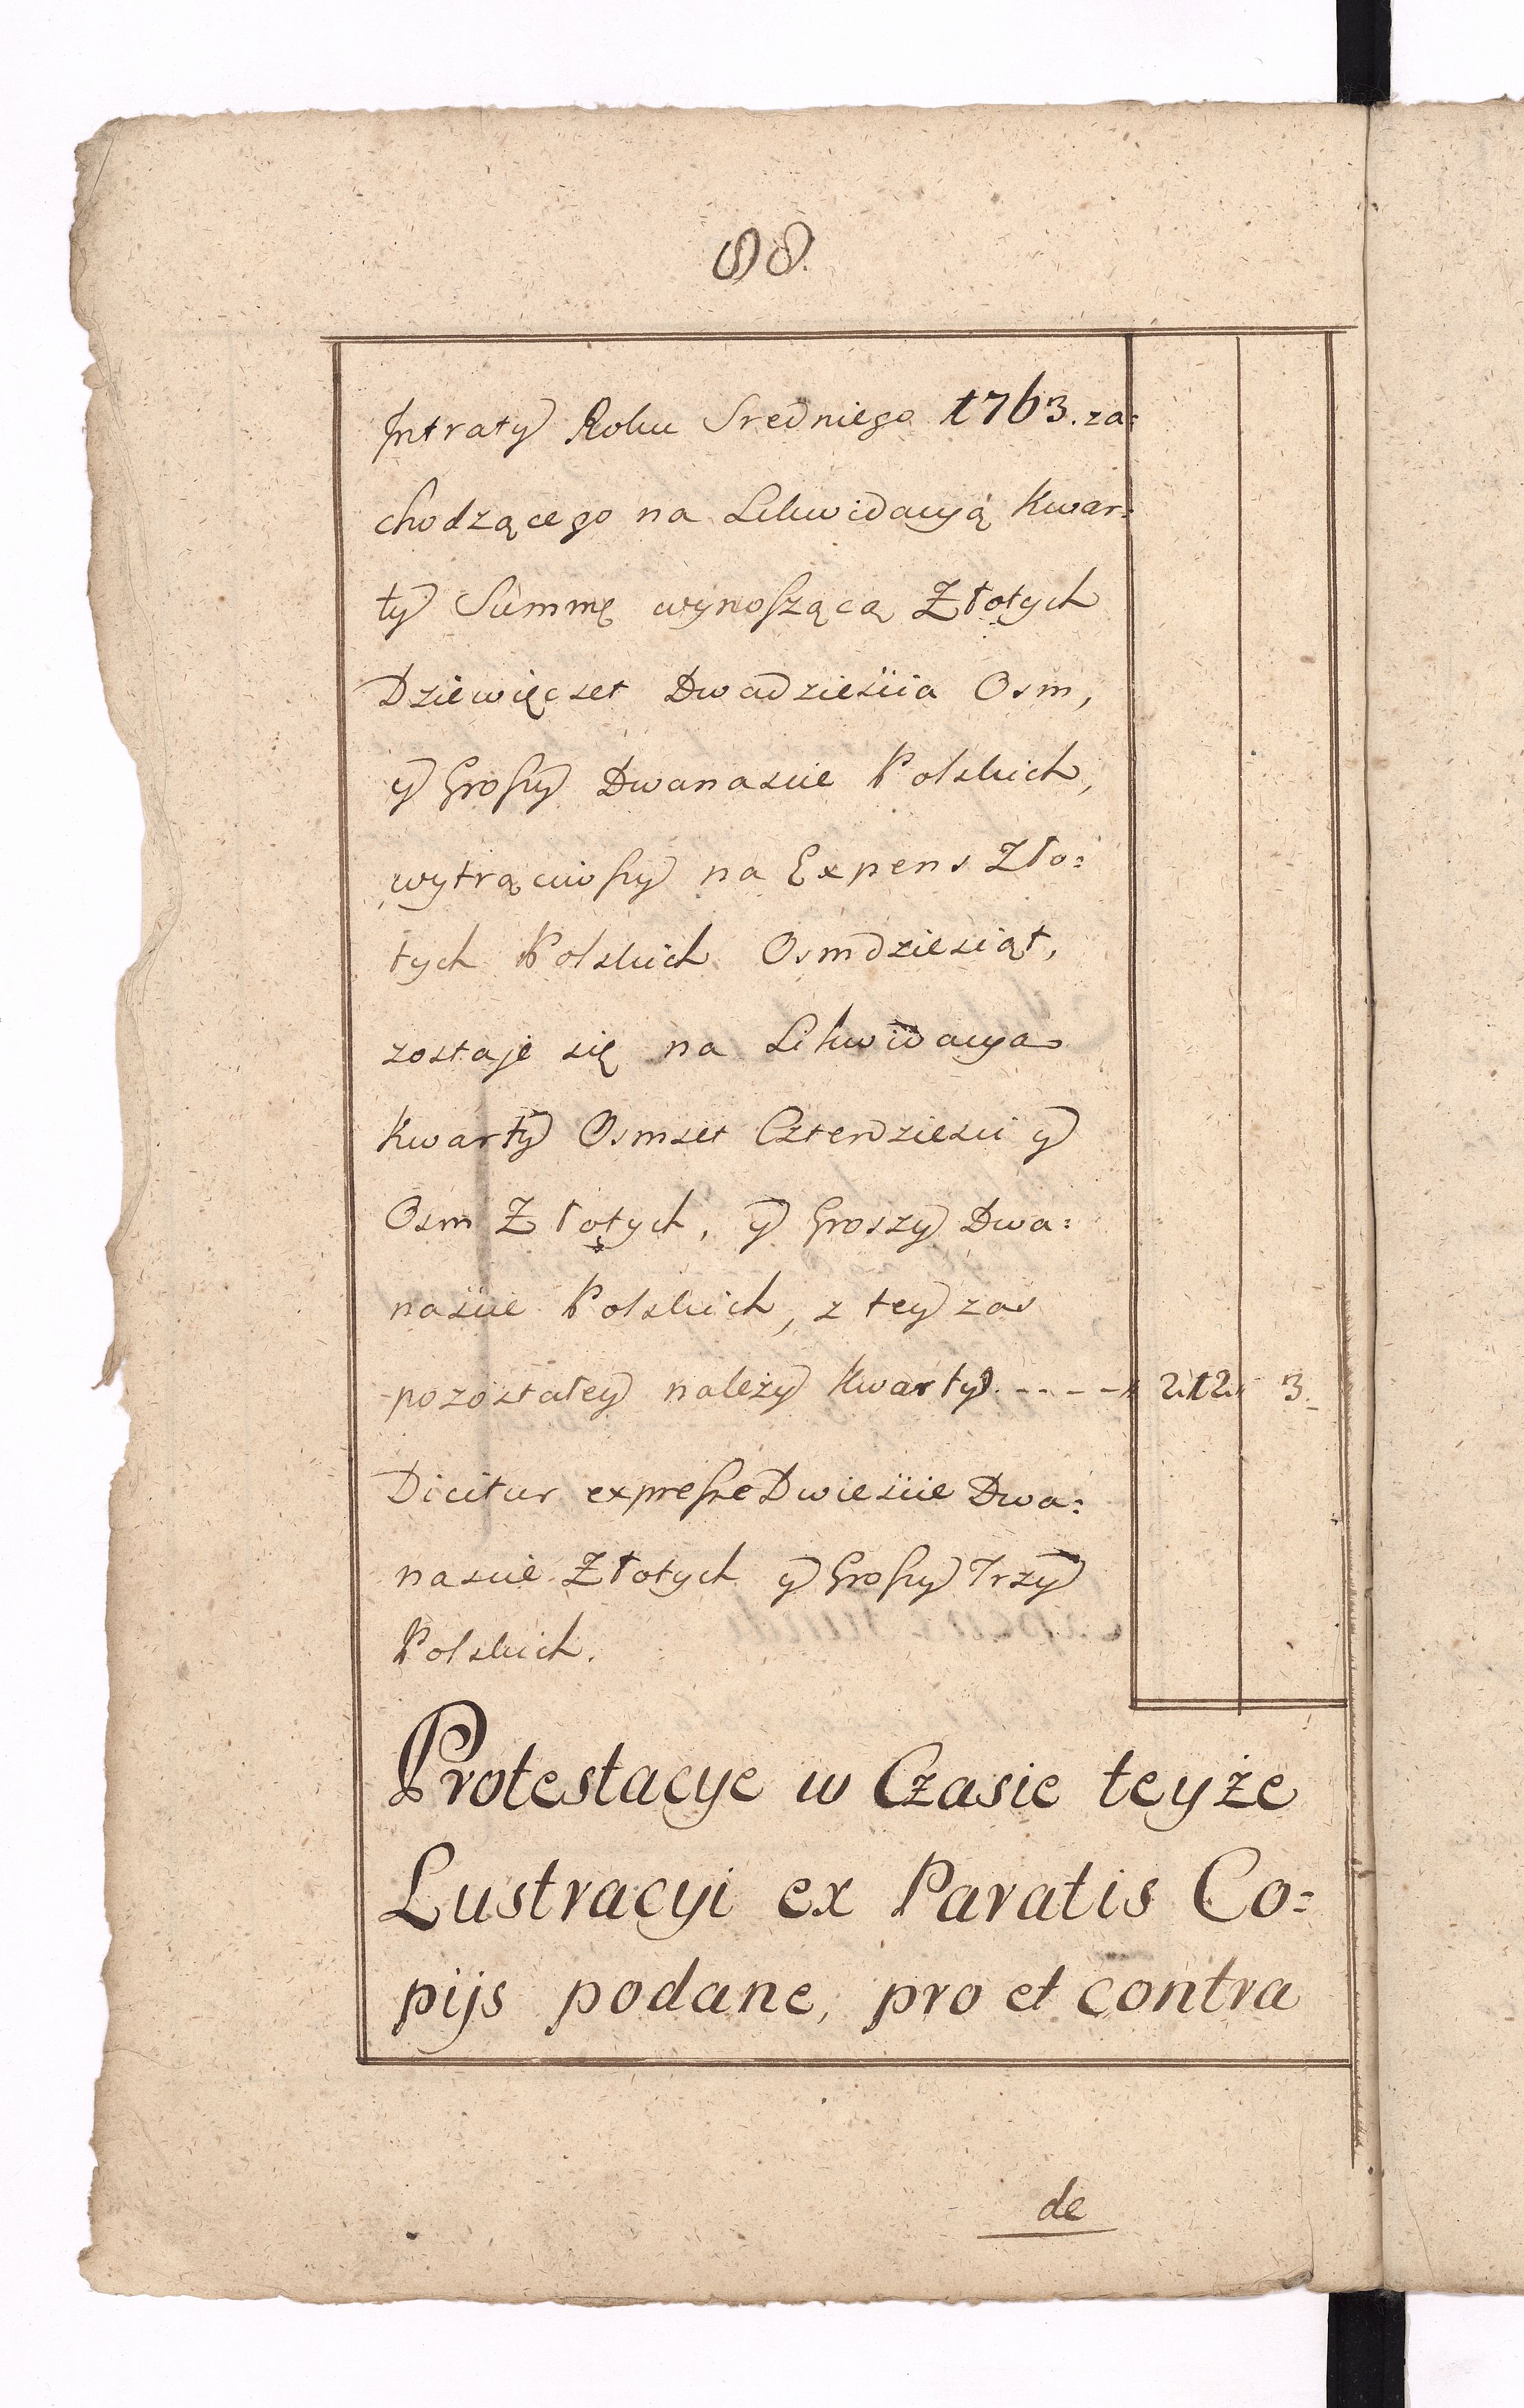 88.
Jntraty Roku Sredniego 1763. za=
chodzącego na Likwidacyą Kwar=
ty Summę wynoszącą Złotych
Dziewięcset Dwadzieścia Osm,
y Groszy Dwanascie Polskich,
wytrąciwszy na Expens Zło=
tych Polskich Osmdziesiąt,
zostaje się na Likwidacya
Kwarty Osmset Czterdziesci y
Osm Złotych, y Groszy Dwa=
naście Polskich, z tey zas
pozostałey należy Kwarty. - - - - 212. 3.
Dicitur expresse Dwieście Dwa=
nascie Złotych y Groszy Trzy
Polskich.
Protestacye w Czasie teyże
Lustracyi ex Paratis Co=
pijs podane, pro et contra
de